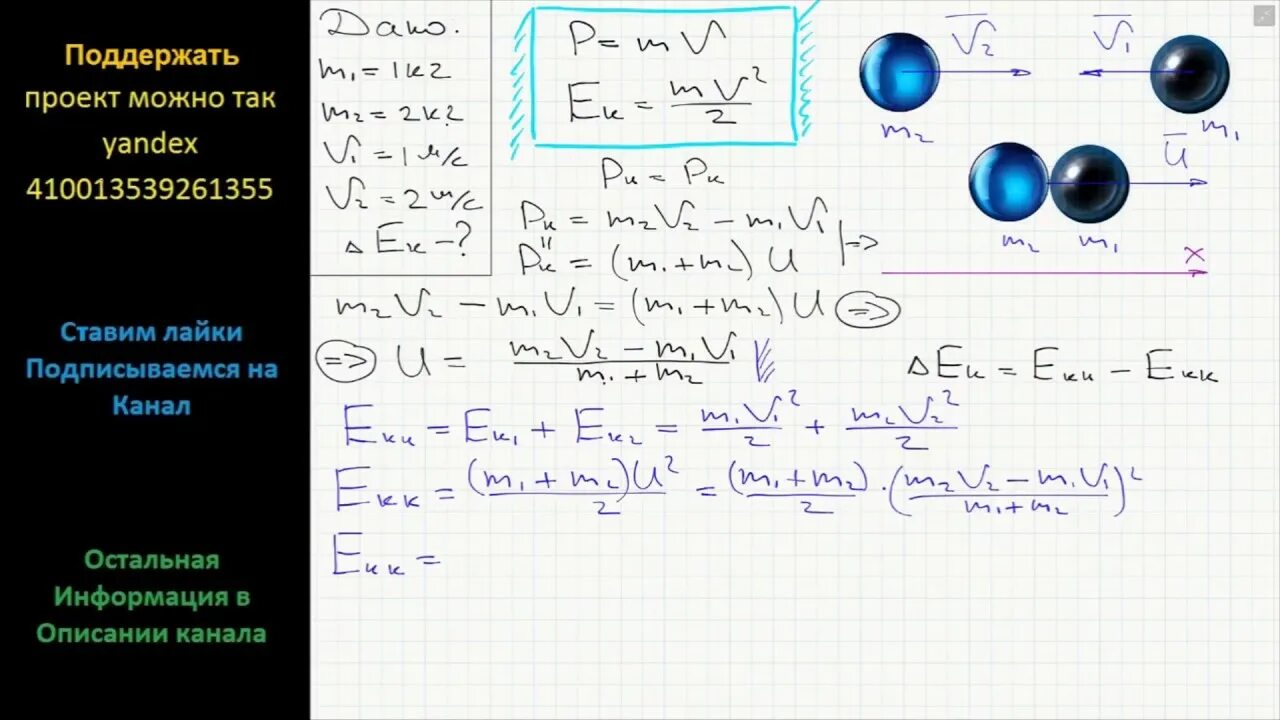 Поддержать
проект можно так
yandex
410013539261355
Ставим лайки
Подписываемся на
Канал
Остальная
Информация в
Описании канала
Дано.
m₁ = 1кг
m₂ = 2кг
V₁ = 1 м/с
V₂ = 2 м/с
△ Eк - ?
P = mV
Eк = mV²/2
Pн = Pк
Pн = m₂V₂ - m₁V₁
"
Pк = (m₁+m₂) U
=>
m₂V₂ - m₁V₁ = (m₁+m₂) U =>
=> U = (m₂V₂ - m₁V₁)/(m₁+m₂)
△Eк = Eкн - Eкк
Eкн = Eк₁ + Eк₂ = m₁V₁²/2 + m₂V₂²/2
Eкк = (m₁+m₂)U²/2 = (m₁+m₂)/2 · ((m₂V₂ - m₁V₁)/(m₁+m₂))²
Eкк =
V̅₂
V̅₁
m₂
m₁
U̅
m₂
m₁
x